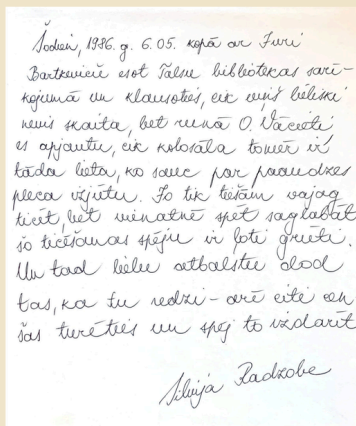 Šodien, 1986. g. 6.05. kopā ar Juri
Bartkeviču esot Talsu bibliotēkas sarī-
kojumā un klausoties, cik viņš lieliski
nevis skaita, bet runā O. Vācieti
es apjautu, cik kolosāla tomēr ir
tāda lieta, ko sauc par paaudzes
pleca izjūtu. Jo tik tiešām vajag
ticēt, bet vienatnē spēt saglabāt
šo ticēšanas spēju ir ļoti grūti.
Un tad lielu atbalstu dod
tas, ka tu redzi – arī citi cen
šas turēties un spēj to izdarīt
Silvija Radzobe